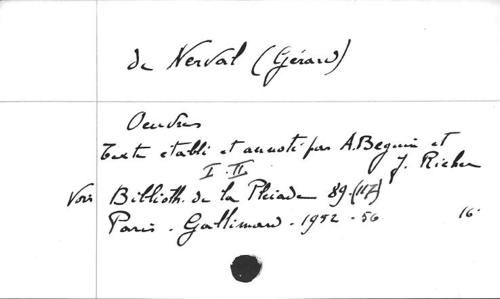 de Nerval (Gérard)
Oeuvres
Texte établi et annoté par A. Beguin et
J. Richer
I. II
Voir Biblioth. de la Pleiade 89. (117)
Paris. Gallimard. 1952-56 16°